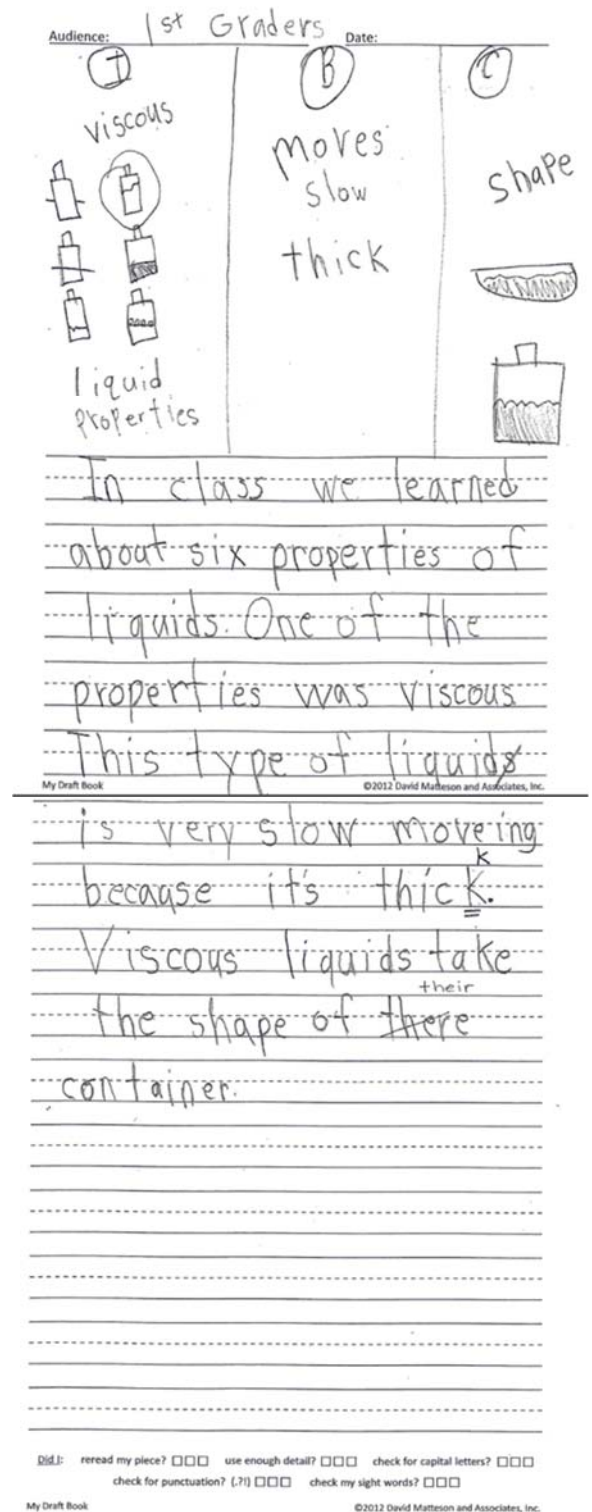 Audience: 1st Graders Date:
I
B
C
viscous
liquid
properties
moves
slow
thick
shape
In class we learned
about six properties of
liquids. One of the
properties was viscous
This type of liquids
My Draft Book ©2012 David Matteson and Associates, Inc.
is very slow moveing
k
because it's thick.
Viscous liquids take
their
the shape of there
container.
Did I: reread my piece? □□□ use enough detail? □□□ check for capital letters? □□□
check for punctuation? (.?!) □□□ check my sight words? □□□
My Draft Book ©2012 David Matteson and Associates, Inc.